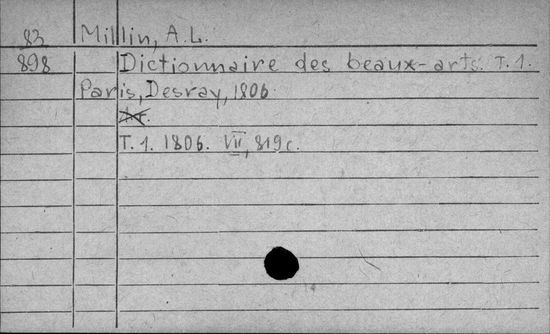 83 Millin, A.L.
898 Dictionnaire des beaux-arts. T. 1.
Paris, Desray, 1806.
T. 1. 1806. VII, 819 c.